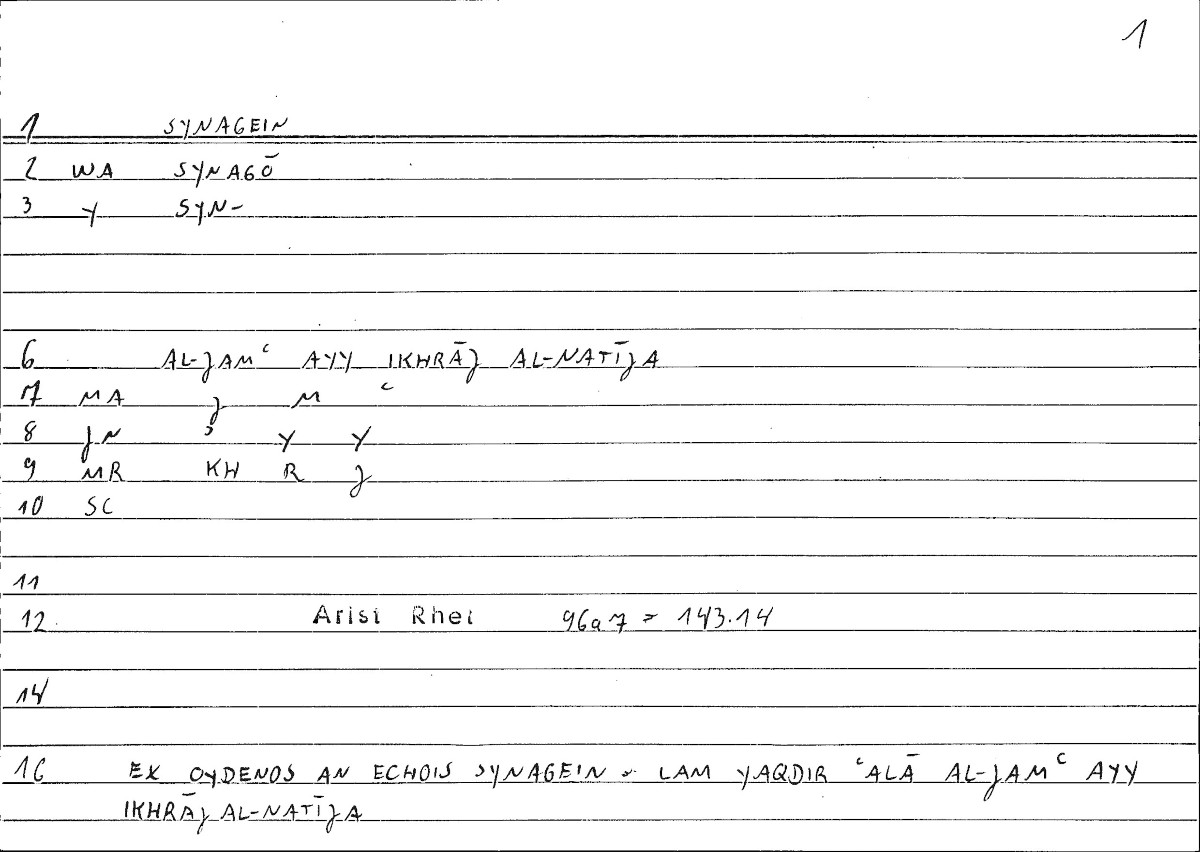 1
1 SYNAGEIN
2 WA SYNAGŌ
3 Y SYN-
6 AL-JAMʿ AYY IKHRĀJ AL-NATĪJA
7 MA J M ʿ
8 JN ʾ Y Y
9 MR KH R J
10 SC
11
12 Arist Rhet 96a7 = 143.14
14
16 EX OYDENOS AN ECHOIS SYNAGEIN = LAM YAQDIR ʿALĀ AL-JAMʿ AYY
IKHRĀJ AL-NATĪJA